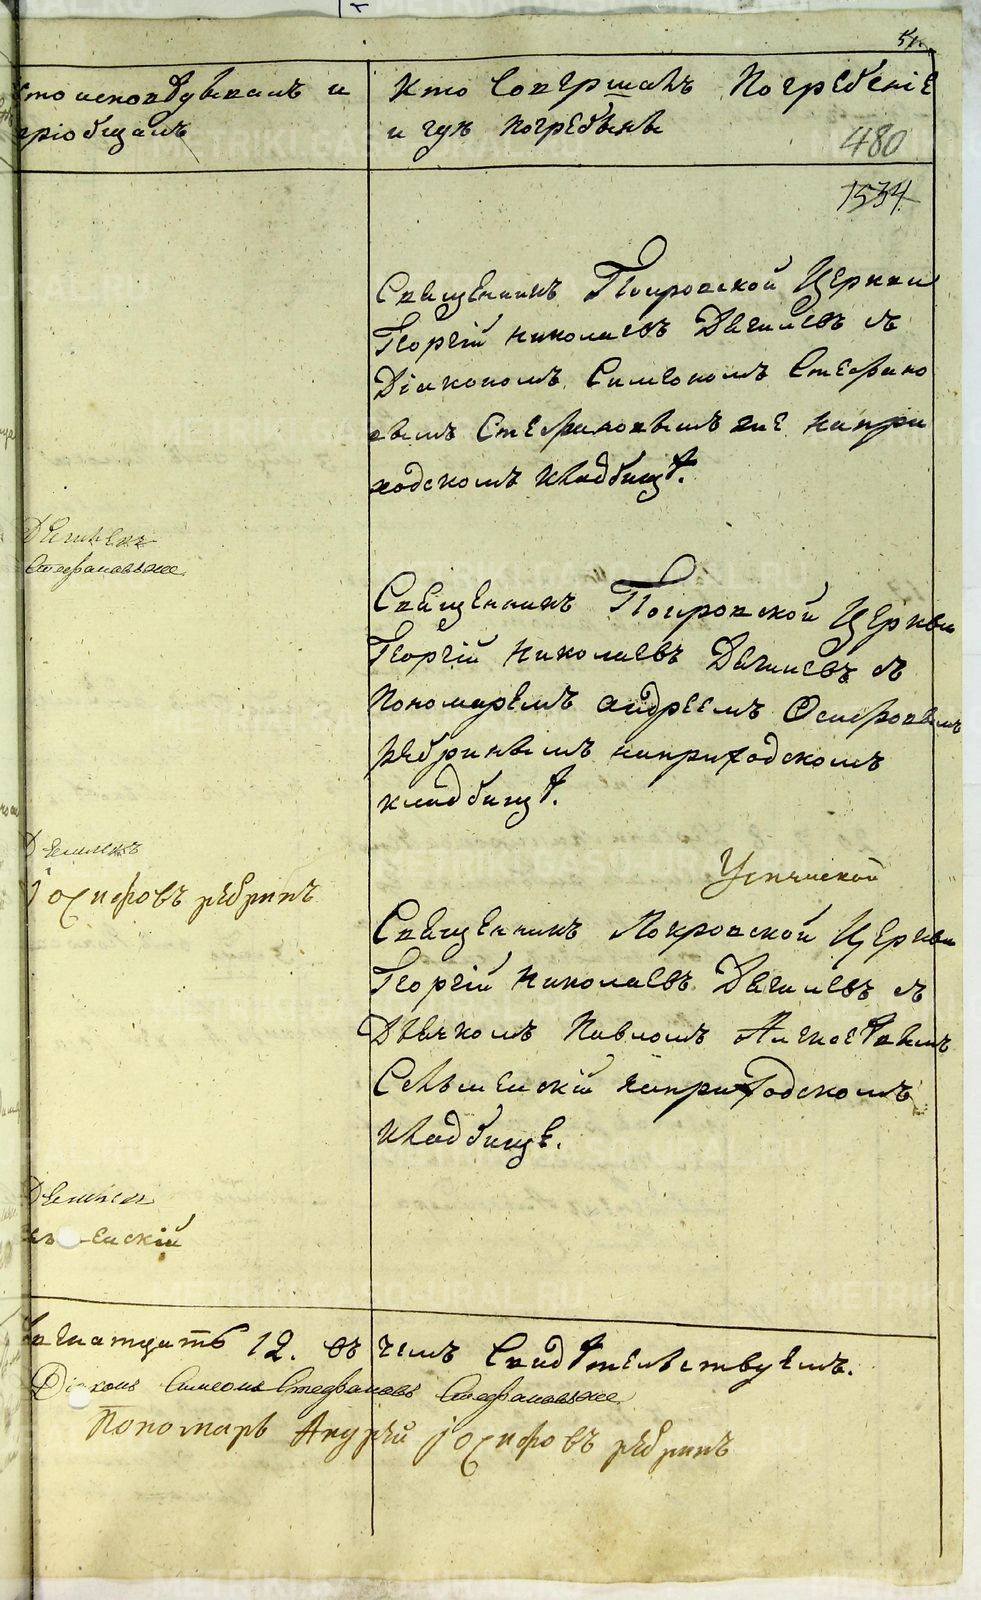 кто исповѣдывалъ и
пріобщалъ
Кто Совершалъ Погребеніе
и гдѣ погребены
480
1534
Священникъ Покровской Церкви
Георгій Николаевъ Дягилевъ съ
Діакономъ Симеономъ Стефано
вымъ Стефановымъ же напри
ходскомъ кладбищѣ.
Стефановъже
Священникъ Покровской Церкви
Георгій Николаевъ Дягилевъ съ
Пономаремъ андреемъ Осиповымъ
Рѣбринымъ наприходскомъ
кладбищѣ.
Іосифовъ рѣбринъ
Священникъ Покровской Церкви
Георгій Николаевъ Дягилевъ съ
Дьячкомъ Павломъ Алексѣевымъ
наприходскомъ
кладбище.
12. въ чемъ Свидѣтельствуемъ.
Діаконъ Симеонъ Стефановъ Стефановъже
Пономарь Андрей Іосифовъ рѣбринъ